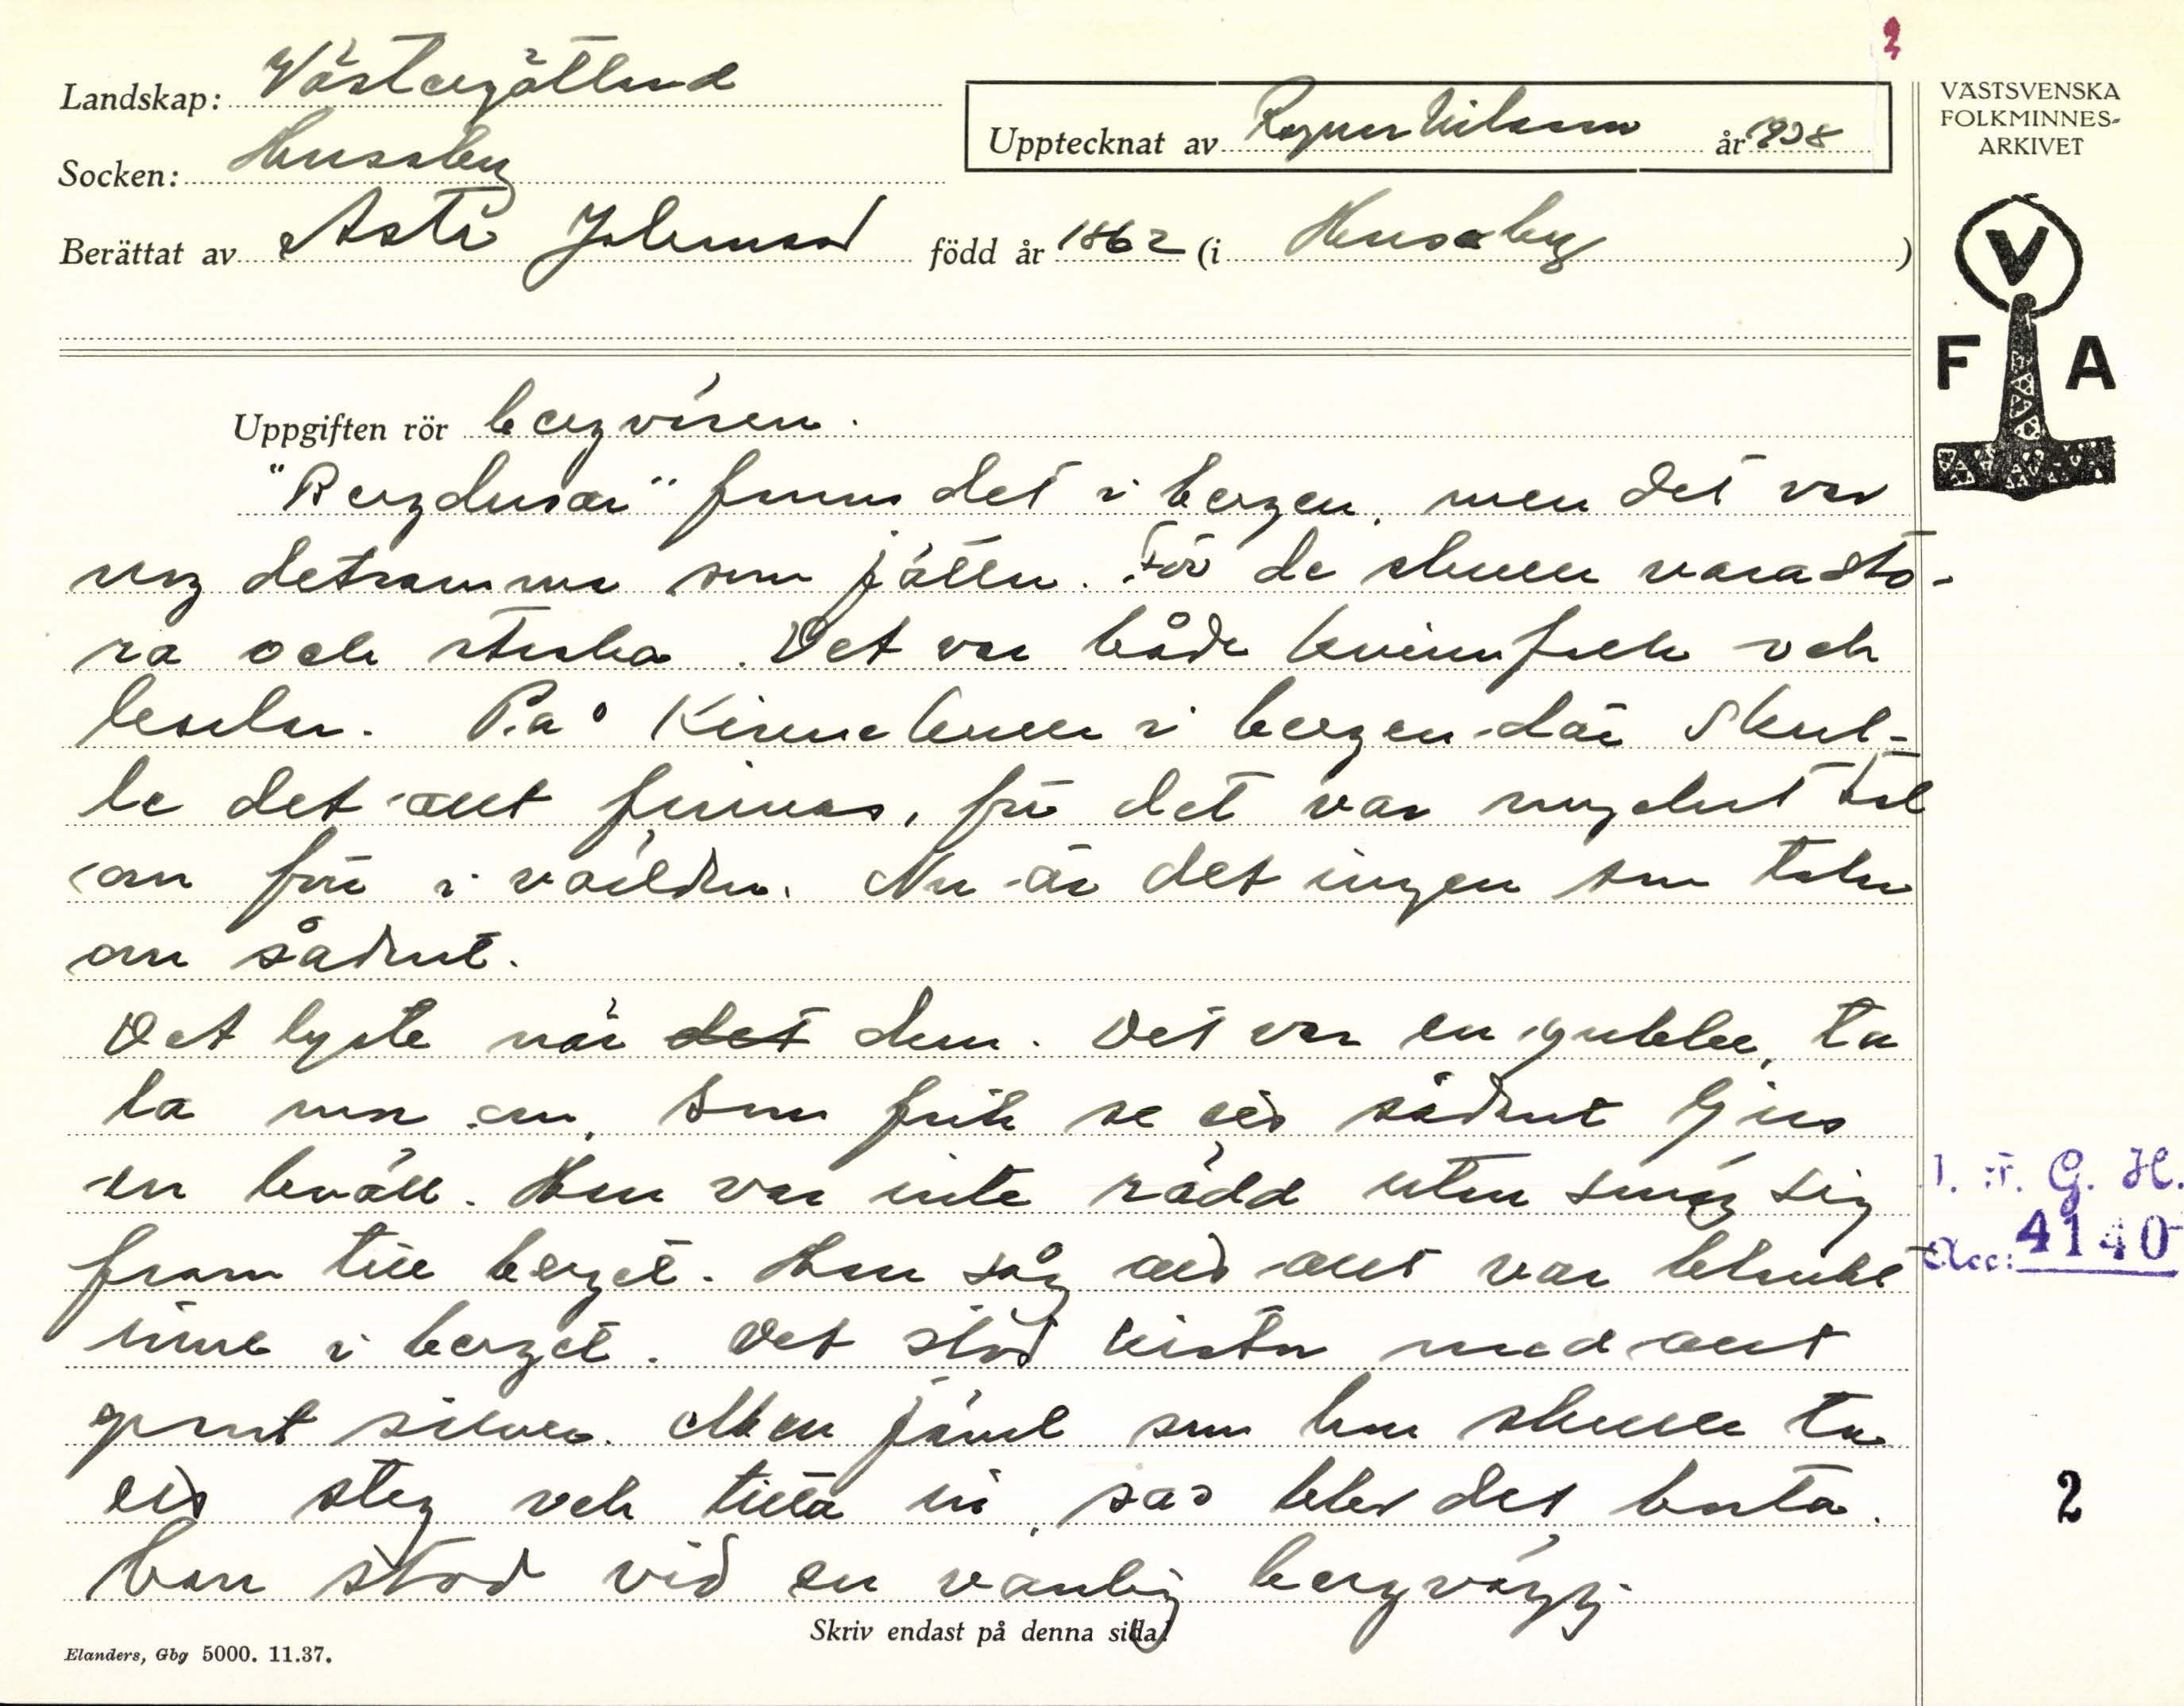 2
Landskap: Västergötland
Socken: Husaby
Upptecknat av Ragnar Nilsson år 1938
Berättat av Johansson född år 1862 (i Husaby)
VÄSTSVENSKA
FOLKMINNES-
ARKIVET
V
F A
Uppgiften rör bergväsen.
"Bergdusar" fanns det i bergen, men det var
nog detsamma som jättar. För de skulle vara sto-
ra och starka. Det var både kvinnfolk och
karlar. På Kinnekulle i bergen där skul-
le det allt finnas, för det var mycket tal
om förr i världen. Nu är det ingen som talar
om sådant.
Det lyste när det dem. Det var en gubbe, ta
la mor om, som fick se ett sådant ljus
en kväll. Han var inte rädd utan smög sig
fram till berget. Han såg att allt var blankt
inne i berget. Det stod kistor med allt
grant silver. Men jämt som han skulle ta
ett steg och titta in, så blev det borta.
Han stod vid en vanlig bergvägg.
I. F. G. H.
Acc: 4140
2
Skriv endast på denna sida!
Elanders, Gbg 5000. 11.37.